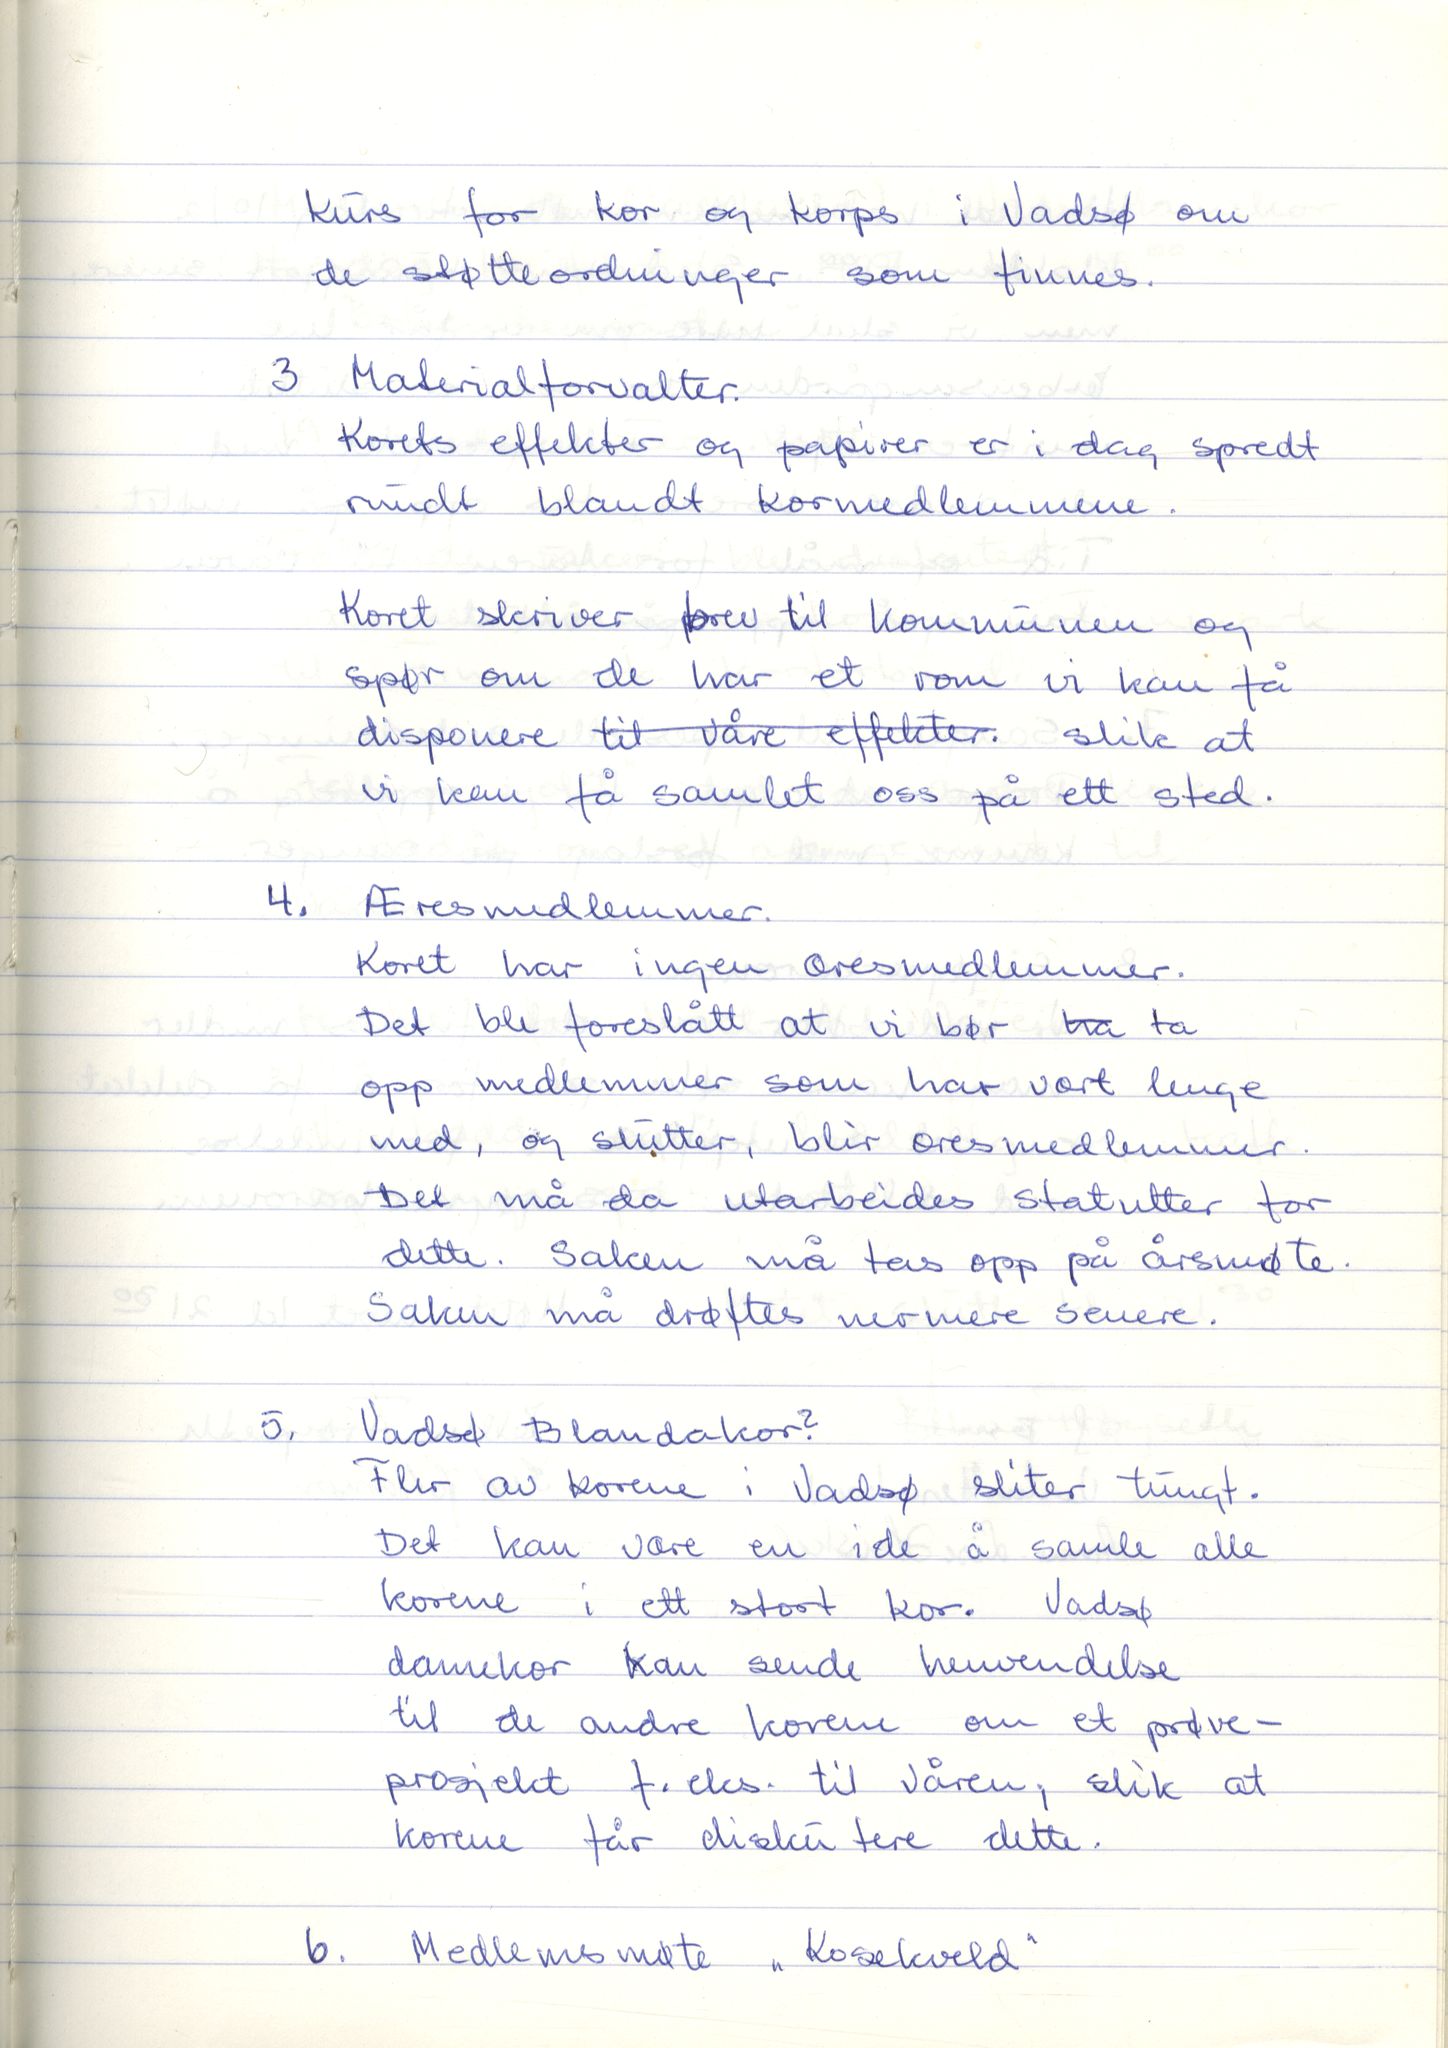 kurs for kor og korps i Vadsø om
de støtteordninger som finnes.
3 Materialforvalter.
Korets effekter og papirer er i dag spredt
rundt blandt kormedlemmene.
Koret skriver brev til kommunen og
spør om de har et rom vi kan få
disponere til våre effekter. slik at
vi kan få samlet oss på ett sted.
4. Æresmedlemmer.
Koret har ingen æresmedlemmer.
Det ble foreslått at vi bør ha ta
opp medlemmer som har vært lenge
med, og slutter, blir æresmedlemmer.
Det må da utarbeides statutter for
dette. Saken må tas opp på årsmøte.
Saken må drøftes nermere senere.
5. Vadsø Blandakor?
Fler av korene i Vadsø sliter tungt.
Det kan være en ide å samle alle
korene i ett stort kor. Vadsø
damekor kan sende henvendelse
til de andre korene om et prøve-
prosjekt f.eks. til våren, slik at
korene får diskutere dette.
6. Medlemsmøte „Kosekveld"